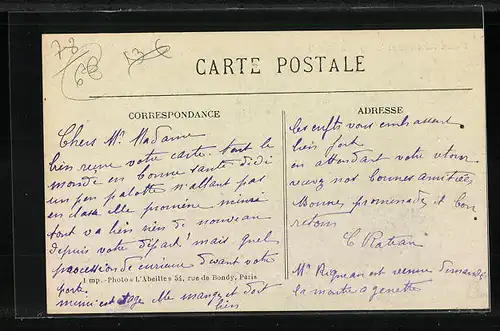 78
CARTE POSTALE
CORRESPONDANCE
Chers Mr Madame
bien reçue votre carte. tout le
monde en bonne santé didi
un peu palotte n'allant pas
en classe elle promène mimi
tout va bien rien de nouveau
depuis votre départ mais quel
procession de curieux devant votre
Imp.-Photos L'Abeille 54, rue de Bondy, Paris
porte.
mimi est sage elle mange et dort
bien
ADRESSE
les enfts vous embrassent
bien fort
en attendant votre retour
recevez nos bonnes amitiés
Bonnes promenades et bon
retour
Mme est venue demander
la montre a ginette